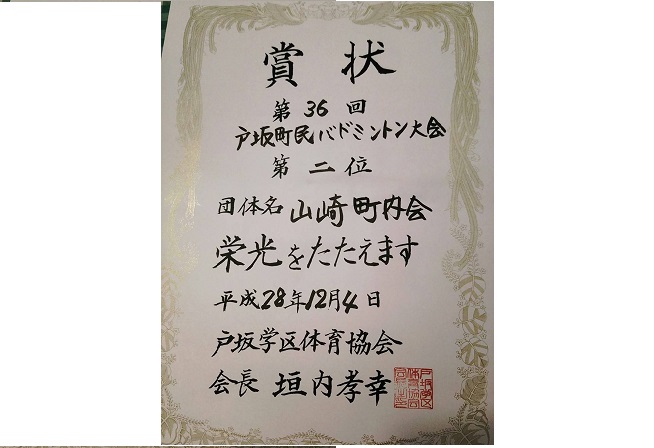 賞状
第36回
戸坂町民バドミントン大会
第二位
団体名 山崎町内会
栄光をたたえます
平成28年12月4日
戸坂学区体育協会
会長 垣内孝幸